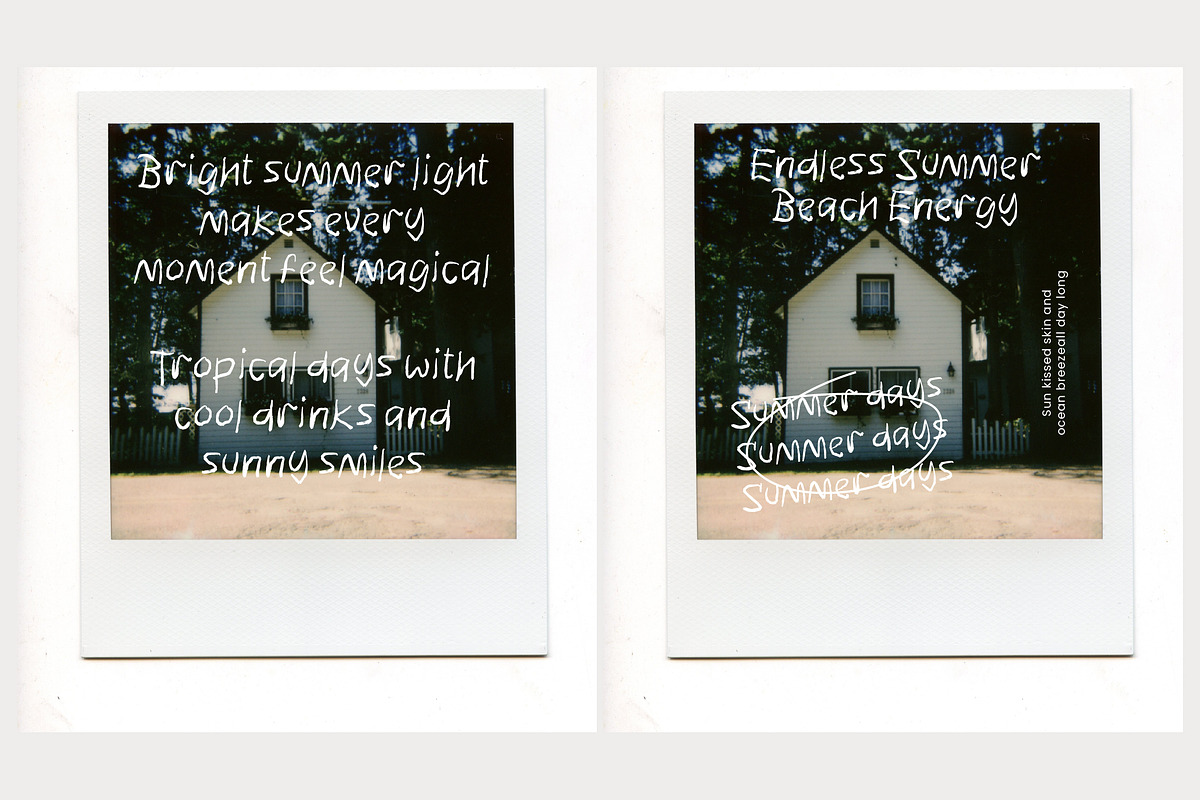 Bright summer light
makes every
moment feel magical
Tropical days with
cool drinks and
sunny smiles
Endless Summer
Beach Energy
Sun kissed skin and
ocean breezeall day long
Summer days
Summer days
Summer days